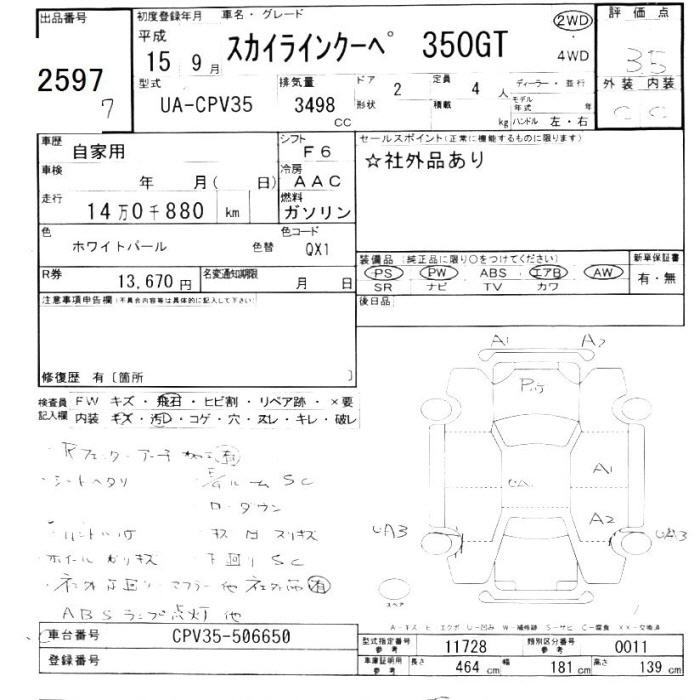 出品番号 初度登録年月 車名・グレード 2WD 評価点
平成
15 9月 スカイラインクーペ 350GT 4WD 3.5
2597
7
型式 排気量 ドア 形状 2 定員 積載 4 人 kg ディーラー・並行 モデル年式 年 ハンドル 左・右 外装 内装
UA-CPV35 3498 cc C C
車歴 自家用 シフト F6 セールスポイント(正常に機能するものに限ります)
車検 年 月( 日) 冷房 AAC ☆社外品あり
走行 14万0千880 km 燃料 ガソリン
色 ホワイトパール 色替 色コード QX1
装備品(純正品に限り○をつけてください) 新車保証書
PS PW ABS エアB AW 有・無
SR ナビ TV カワ
R券 13,670円 名変通知期限 月 日
後日品
注意事項申告欄(不具合内容等は具体的に記入して下さい)
修復歴 有〔箇所 〕
検査員記入欄 FW キズ・飛石・ヒビ割・リペア跡・×要
内装・キズ・汚レ・コゲ・穴・ヌレ・キレ・破レ
A1 A2
A1
A2
UA3 UA3
・シートヘタリ ルーム SC
ローダウン
・ホイールガリキズ 下回り SC
ABSランプ点灯 他
スペア
A-キズ E-エクボ U-凹み W-補修跡 S-サビ C-腐食 XX-交換済
車台番号 CPV35-506650
登録番号
型式指定番号 参考 11728 類別区分番号 参考 0011
車庫証明用 参考 長さ 464 cm 幅 181 cm 高さ 139 cm